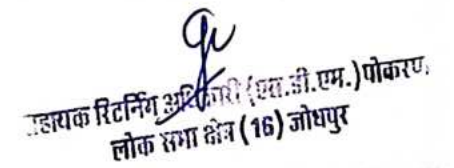 सहायक रिटर्निंग अधिकारी (एस.डी.एम.) पोकरण
लोक सभा क्षेत्र (16) जोधपुर